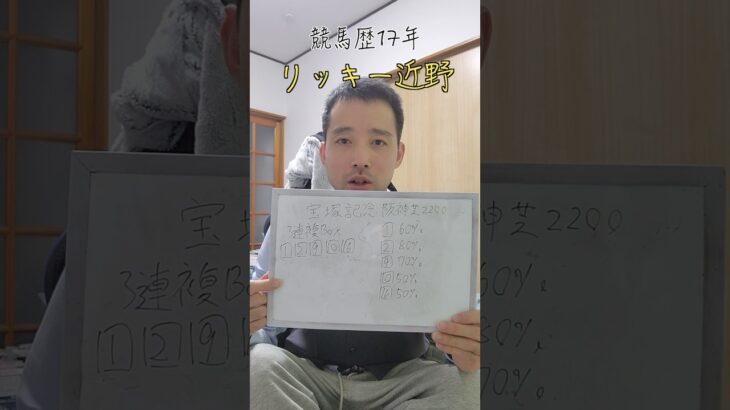 競馬歴17年
リッキー近野
宝塚記念 阪神芝2200
3連複Box
1 2 9 10
1 60%
2 80%
9 70%
10 50%
50%